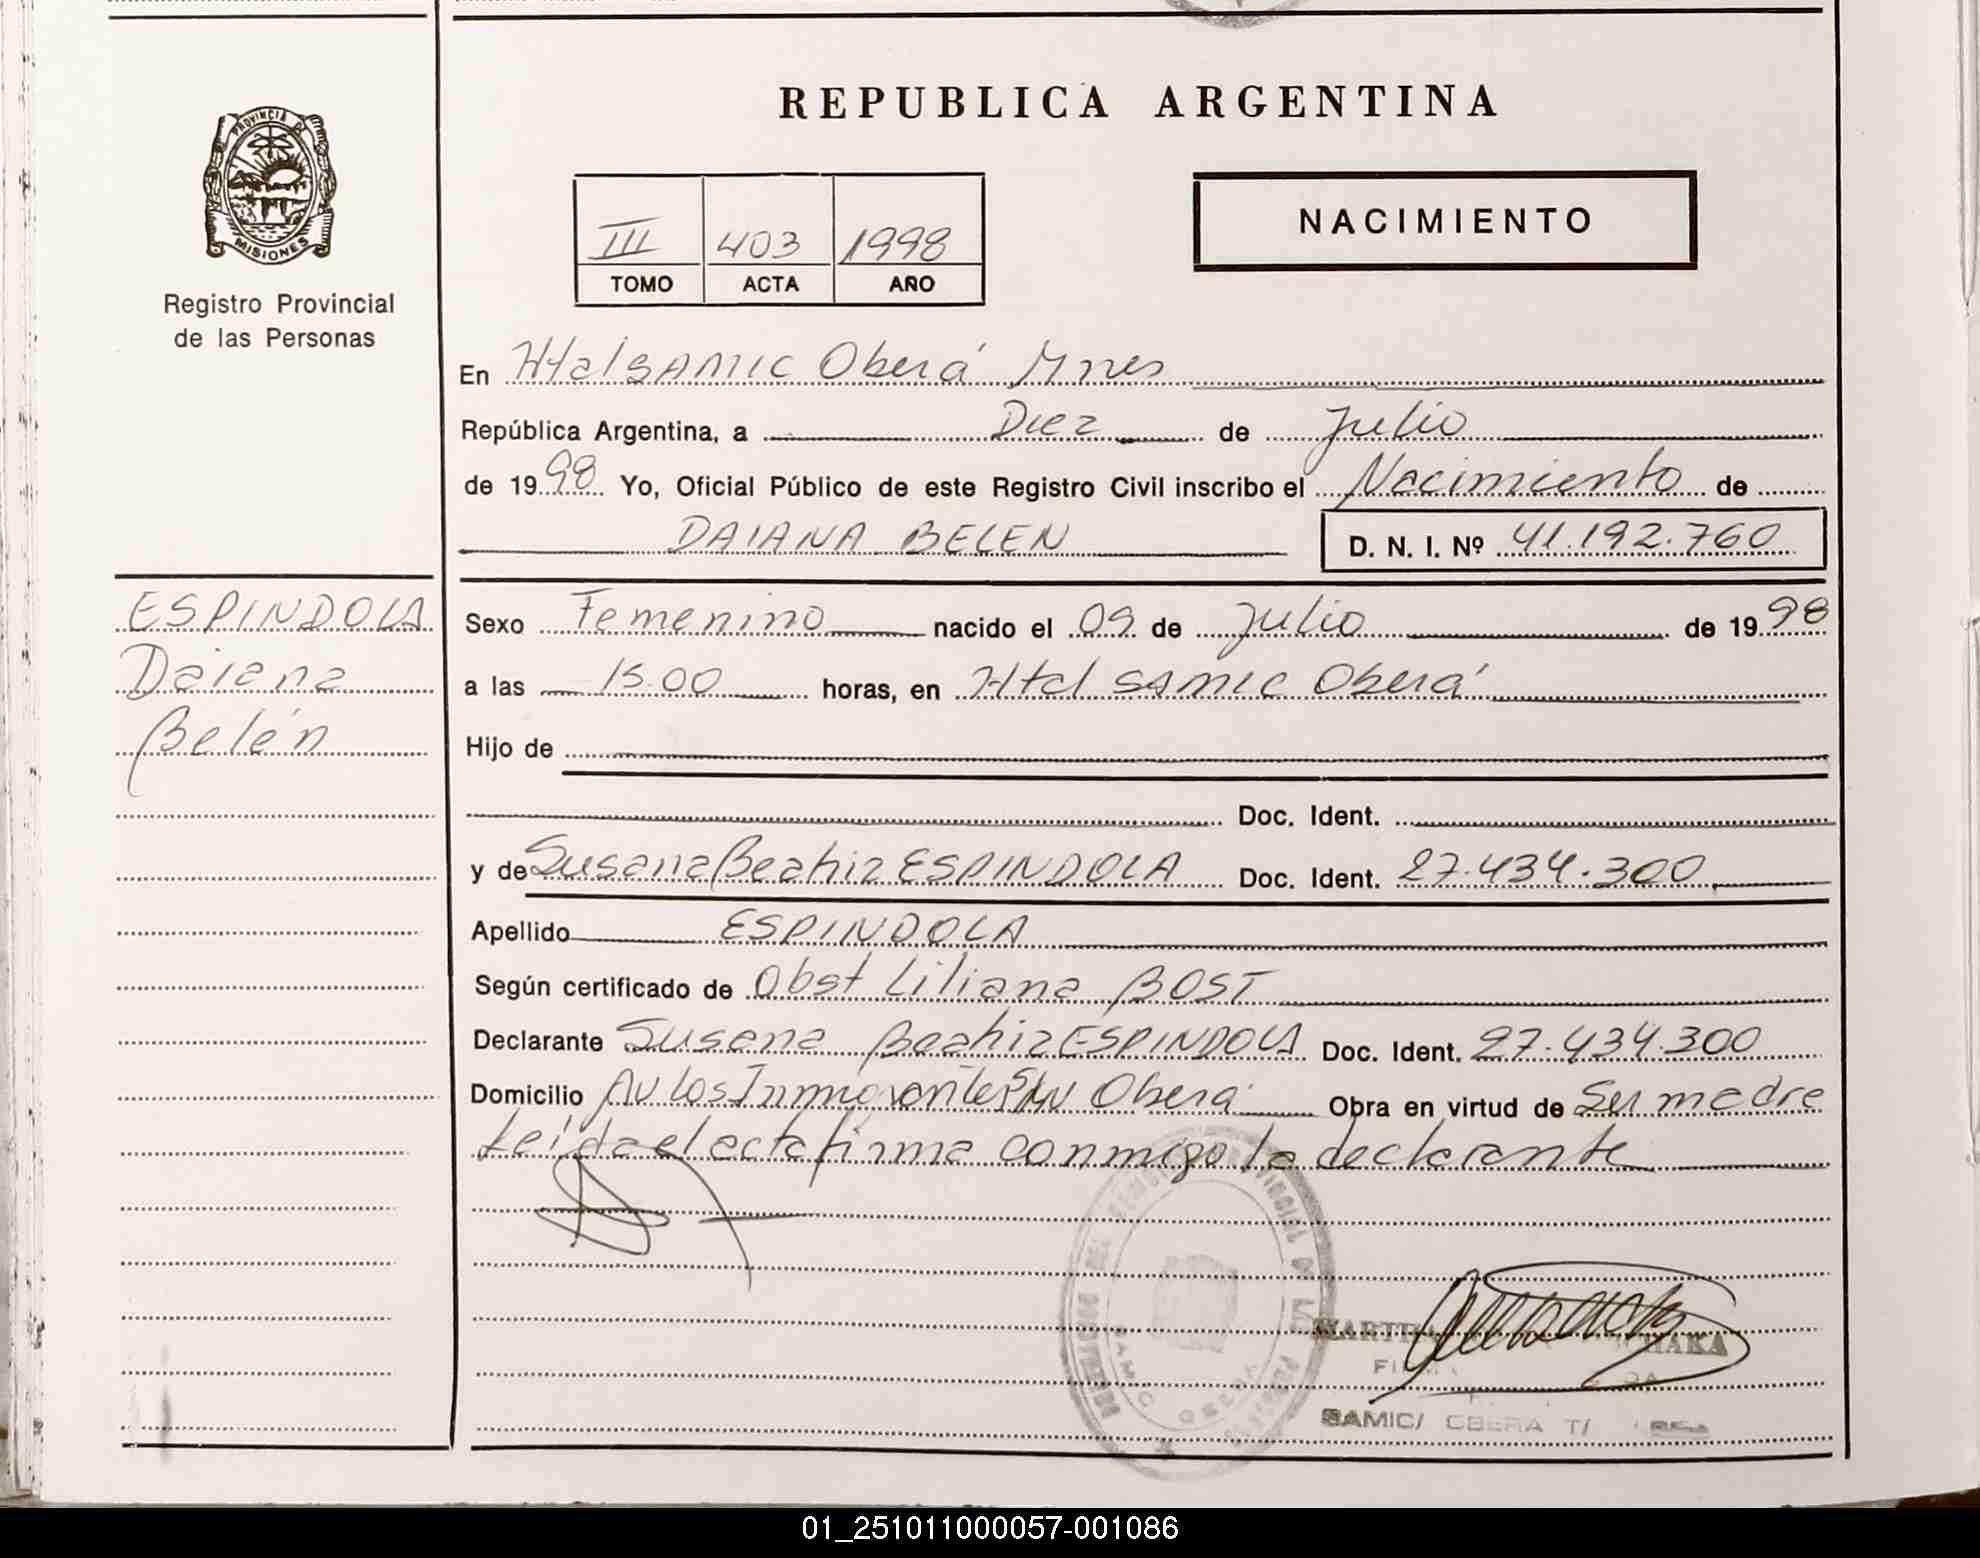 REPUBLICA ARGENTINA
PROVINCIA D
MISIONES
Registro Provincial
de las Personas
III 403 1998
TOMO ACTA AÑO
NACIMIENTO
En Htal SAMIC Oberá Mnes
República Argentina, a Diez de Julio
de 1998 Yo, Oficial Público de este Registro Civil inscribo el Nacimiento de
DAIANA BELEN D. N. I. Nº 41.192.760
ESPINDOLA
Daiana
Belén
Sexo Femenino nacido el 09 de Julio de 1998
a las 15.00 horas, en Htal SAMIC Oberá
Hijo de
Doc. Ident.
y de Susana Beatriz ESPINDOLA Doc. Ident. 27.434.300
Apellido ESPINDOLA
Según certificado de Obst Liliana BOST
Declarante Susana Beatriz ESPINDOLA Doc. Ident. 27.434.300
Domicilio Av Los Inmigrantes S/N Oberá Obra en virtud de Su madre
Leída el acta firma conmigo la declarante
MARTH HAKA
SAMIC/ OBERA
01_251011000057-001086